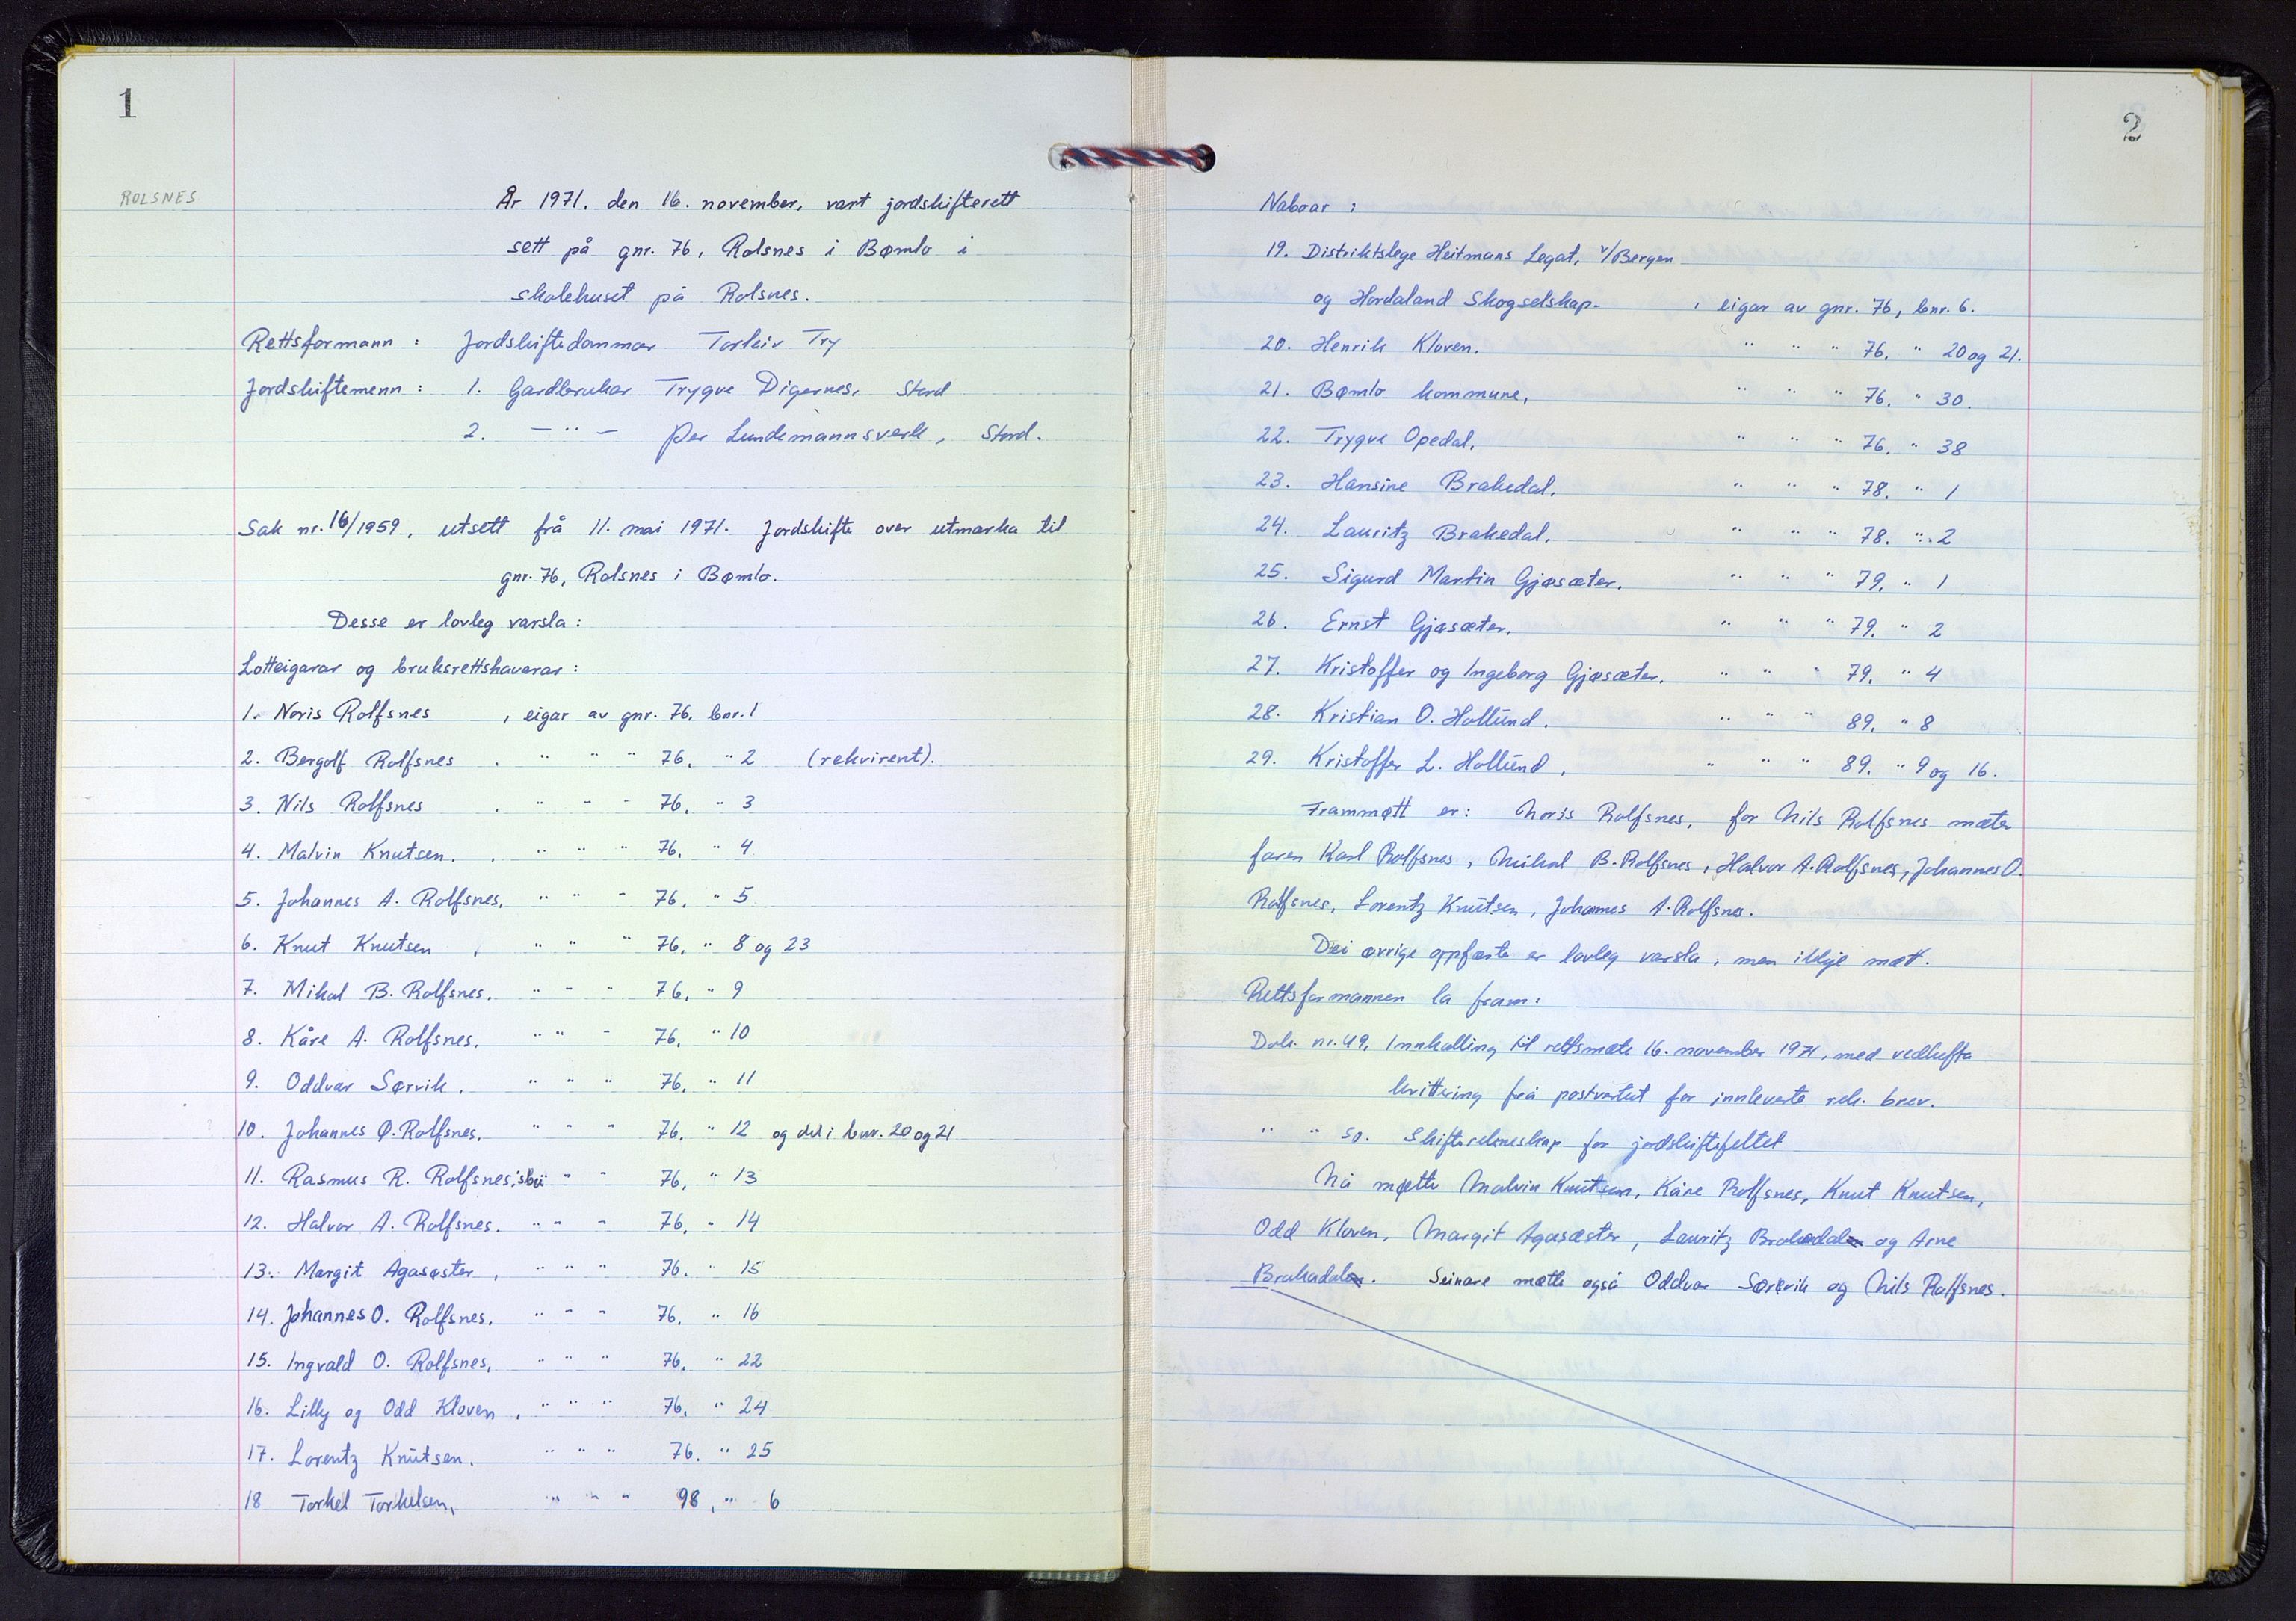 1
ROLSNES
År 1971. den 16. november, vart jordskifterett
sett på gnr. 76, Rolsnes i Bømlo i
skolehuset på Rolsnes.
Rettsformann : Jordskiftedommar Torleiv Try
Jordskiftemenn : 1. Gardbrukar Trygve Digernes, Stord
2. — " — Per Lundemannsverk, Stord.
Sak nr. 16/1959, utsett frå 11. mai 1971. Jordskifte over utmarka til
gnr. 76, Rolsnes i Bømlo.
Desse er lovleg varsla :
Lotteigarar og bruksrettshavarar :
1. Noris Rolfsnes , eigar av gnr. 76, bnr. 1
2. Bergolf Rolfsnes . " " " 76, " 2 (rekvirent).
3. Nils Rolfsnes . " " " 76, " 3
4. Malvin Knutsen. . " " " 76, " 4
5. Johannes A. Rolfsnes, " " " 76, " 5
6. Knut Knutsen , " " " 76, " 8 og 23
7. Mikal B. Rolfsnes. " " " 76, " 9
8. Kåre A. Rolfsnes. " " " 76, " 10
9. Oddvar Sørvik. " " " 76, " 11
10. Johannes Ø. Rolfsnes. " " " 76, " 12 og del i bnr. 20 og 21
11. Rasmus R. Rolfsnes, sbu " " 76, " 13
12. Halvor A. Rolfsnes. " " " 76, " 14
13. Margit Agasøster , " " " 76. " 15
14. Johannes O. Rolfsnes. " " " 76, " 16
15. Ingvald O. Rolfsnes, " " " 76, " 22
16. Lilly og Odd Kloven , " " " 76, " 24
17. Lorentz Knutsen. " " " 76. " 25
18 Torkel Torkelsen, " " " 98, " 6
2
Naboar :
19. Distriktslege Heitmans Legat, v/Bergen
og Hordaland Skogselskap- , eigar av gnr. 76, bnr. 6.
20. Henrik Kloven. " " " 76, " 20 og 21.
21. Bømlo kommune, " " " 76. " 30.
22. Trygve Opedal, " " " 76. " 38
23. Hansine Brakedal, " " " 78, " 1
24. Lauritz Brakedal, " " " 78. " 2
25. Sigurd Martin Gjøsæter, " " " 79, " 1
26. Ernst Gjøsæter, " " " 79, " 2
27. Kristoffer og Ingeborg Gjøsæter. " " " 79, " 4
28. Kristian O. Hollund. " " " 89, " 8
29. Kristoffer L. Hollund , " " " 89. " 9 og 16.
Frammøtt er: Noris Rolfsnes, for Nils Rolfsnes møter
faren Karl Rolfsnes, Mikal B. Rolfsnes, Halvor A. Rolfsnes, Johannes O.
Rolfsnes, Lorentz Knutsen, Johannes A. Rolfsnes.
Dei øvrige oppførte er lovleg varsla, men ikkje møtt.
Rettsformannen la fram:
Dok. nr. 49. Innkalling til rettsmøte 16. november 1971, med vedhefta
kvittering frå postverket for innleverte rek. brev.
" " 50. Skifterekneskap for jordskiftefeltet
Nå møtte Malvin Knutsen, Kåre Rolfsnes, Knut Knutsen,
Odd Kloven, Margit Agasøster, Lauritz Brakedal og Arne
Brakedal. Seinare møtte også Oddvar Sørvik og Nils Rolfsnes.